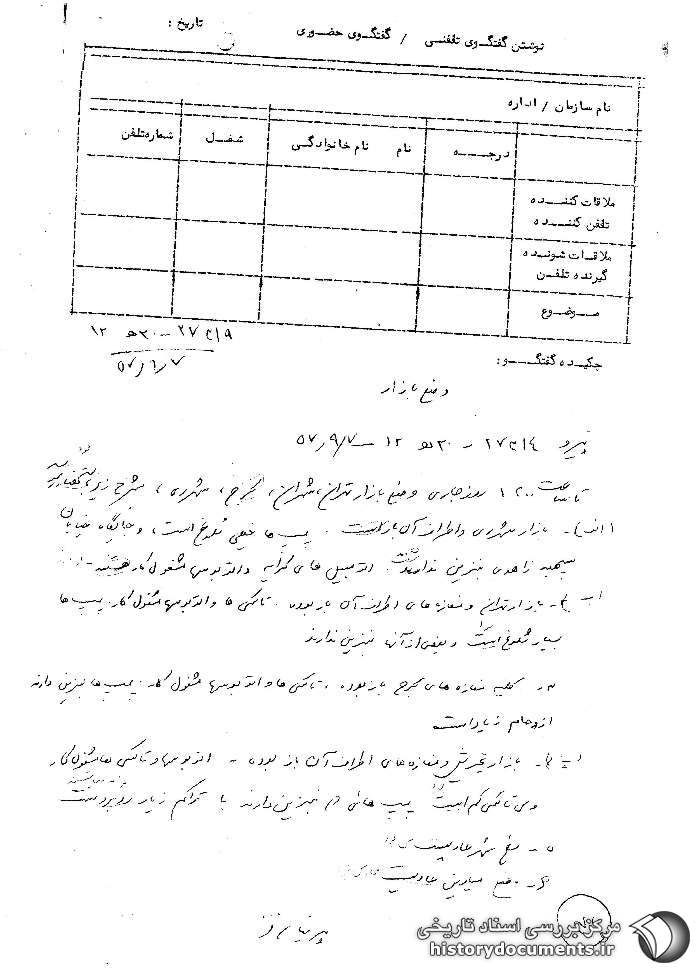 تاریخ :
نوشتن گفتگوی تلفنی / گفتگوی حضوری
نام سازمان / اداره
درجه نام نام خانوادگی شغل شماره تلفن
ملاقات کننده
تلفن کننده
ملاقات شونده
گیرنده تلفن
موضوع
چکیده گفتگو :
۵۷/۹/۷
وضع بازار
۵۷/۹/۷
روز جاری وضع بازار تهران، شمران، کرج، شهرری، بشرح زیر
الف) - بازار شهرری و اطراف آن باز است . پمپ ها خیلی شلوغ است، و جایگاه خیابان
سپهبد زاهدی بنزین ندارد . اتومبیل های کرایه و اتوبوسها مشغول کار هستند
ب - بازار تهران و مغازه های اطراف آن باز بوده . تاکسی ها و اتوبوسها مشغول کار . پمپ ها
بسیار شلوغ است و بعضی از آنها بنزین ندارند
کلیه مغازه های کرج باز بوده . تاکسی ها و اتوبوسها مشغول کار . پمپ ها بنزین دارند
ازدحام زیاد است
بازار تجریش و مغازه های اطراف آن باز بوده - اتوبوسها و تاکسی ها مشغول کار
ولی تاکسی کم است پمپ هائی که بنزین دارند با تراکم زیاد روبرو
۵ - وضع شهر عادیست
۶ - وضع میادین عادیست
مرکز بررسی اسناد تاریخی
historydocuments.ir